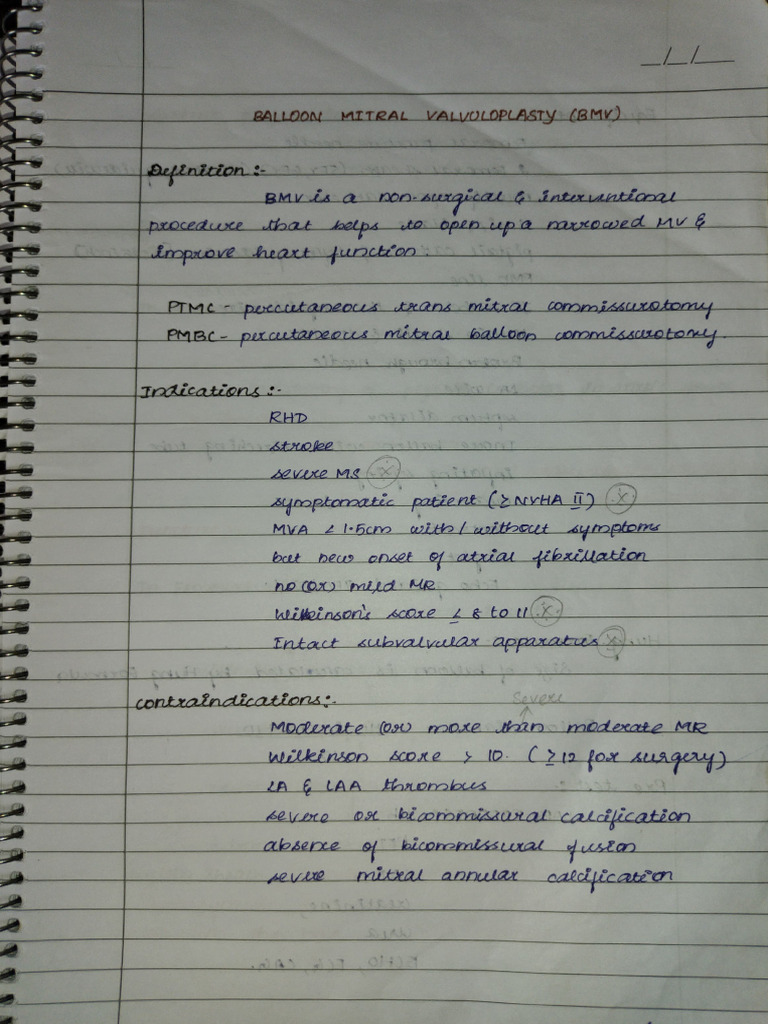 _/_/__
BALLOON MITRAL VALVULOPLASTY (BMV)
Definition :-
BMV is a non-surgical & interventional
procedure that helps to open up a narrowed MV &
improve heart function.
PTMC - percutaneous trans mitral commissurotomy
PMBC - percutaneous mitral balloon commissurotomy.
Indications :-
RHD
stroke
severe MS
symptomatic patient (≥ NYHA II)
MVA < 1.5cm with / without symptoms
but new onset of atrial fibrillation
no (or) mild MR
Wilkinson's score ≤ 8 to 11
Intact subvalvular apparatus
contraindications :-
Severe
Moderate (or) more than moderate MR
Wilkinson score > 10. (≥ 12 for surgery)
LA & LAA thrombus
severe or bicommissural calcification
absence of bicommissural fusion
severe mitral annular calcification